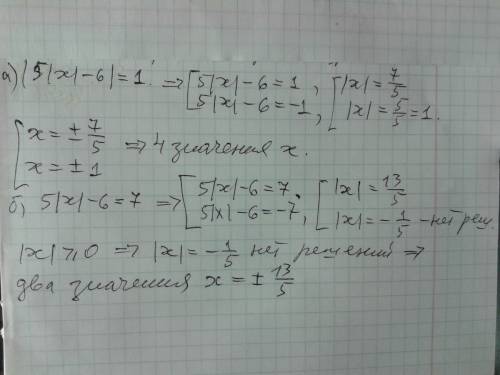 а) |5|x|-6|=1. => [5|x|-6=1, [|x|=7/5
5|x|-6=-1, |x|=5/5=1.
[x=±7/5 => 4 значения x.
x=±1
б) 5|x|-6=7 => [5|x|-6=7. [|x|=13/5
5|x|-6=-7, |x|=-1/5 -нет реш.
|x|⩾0 => |x|=-1/5 нет решений =>
два значения x=±13/5